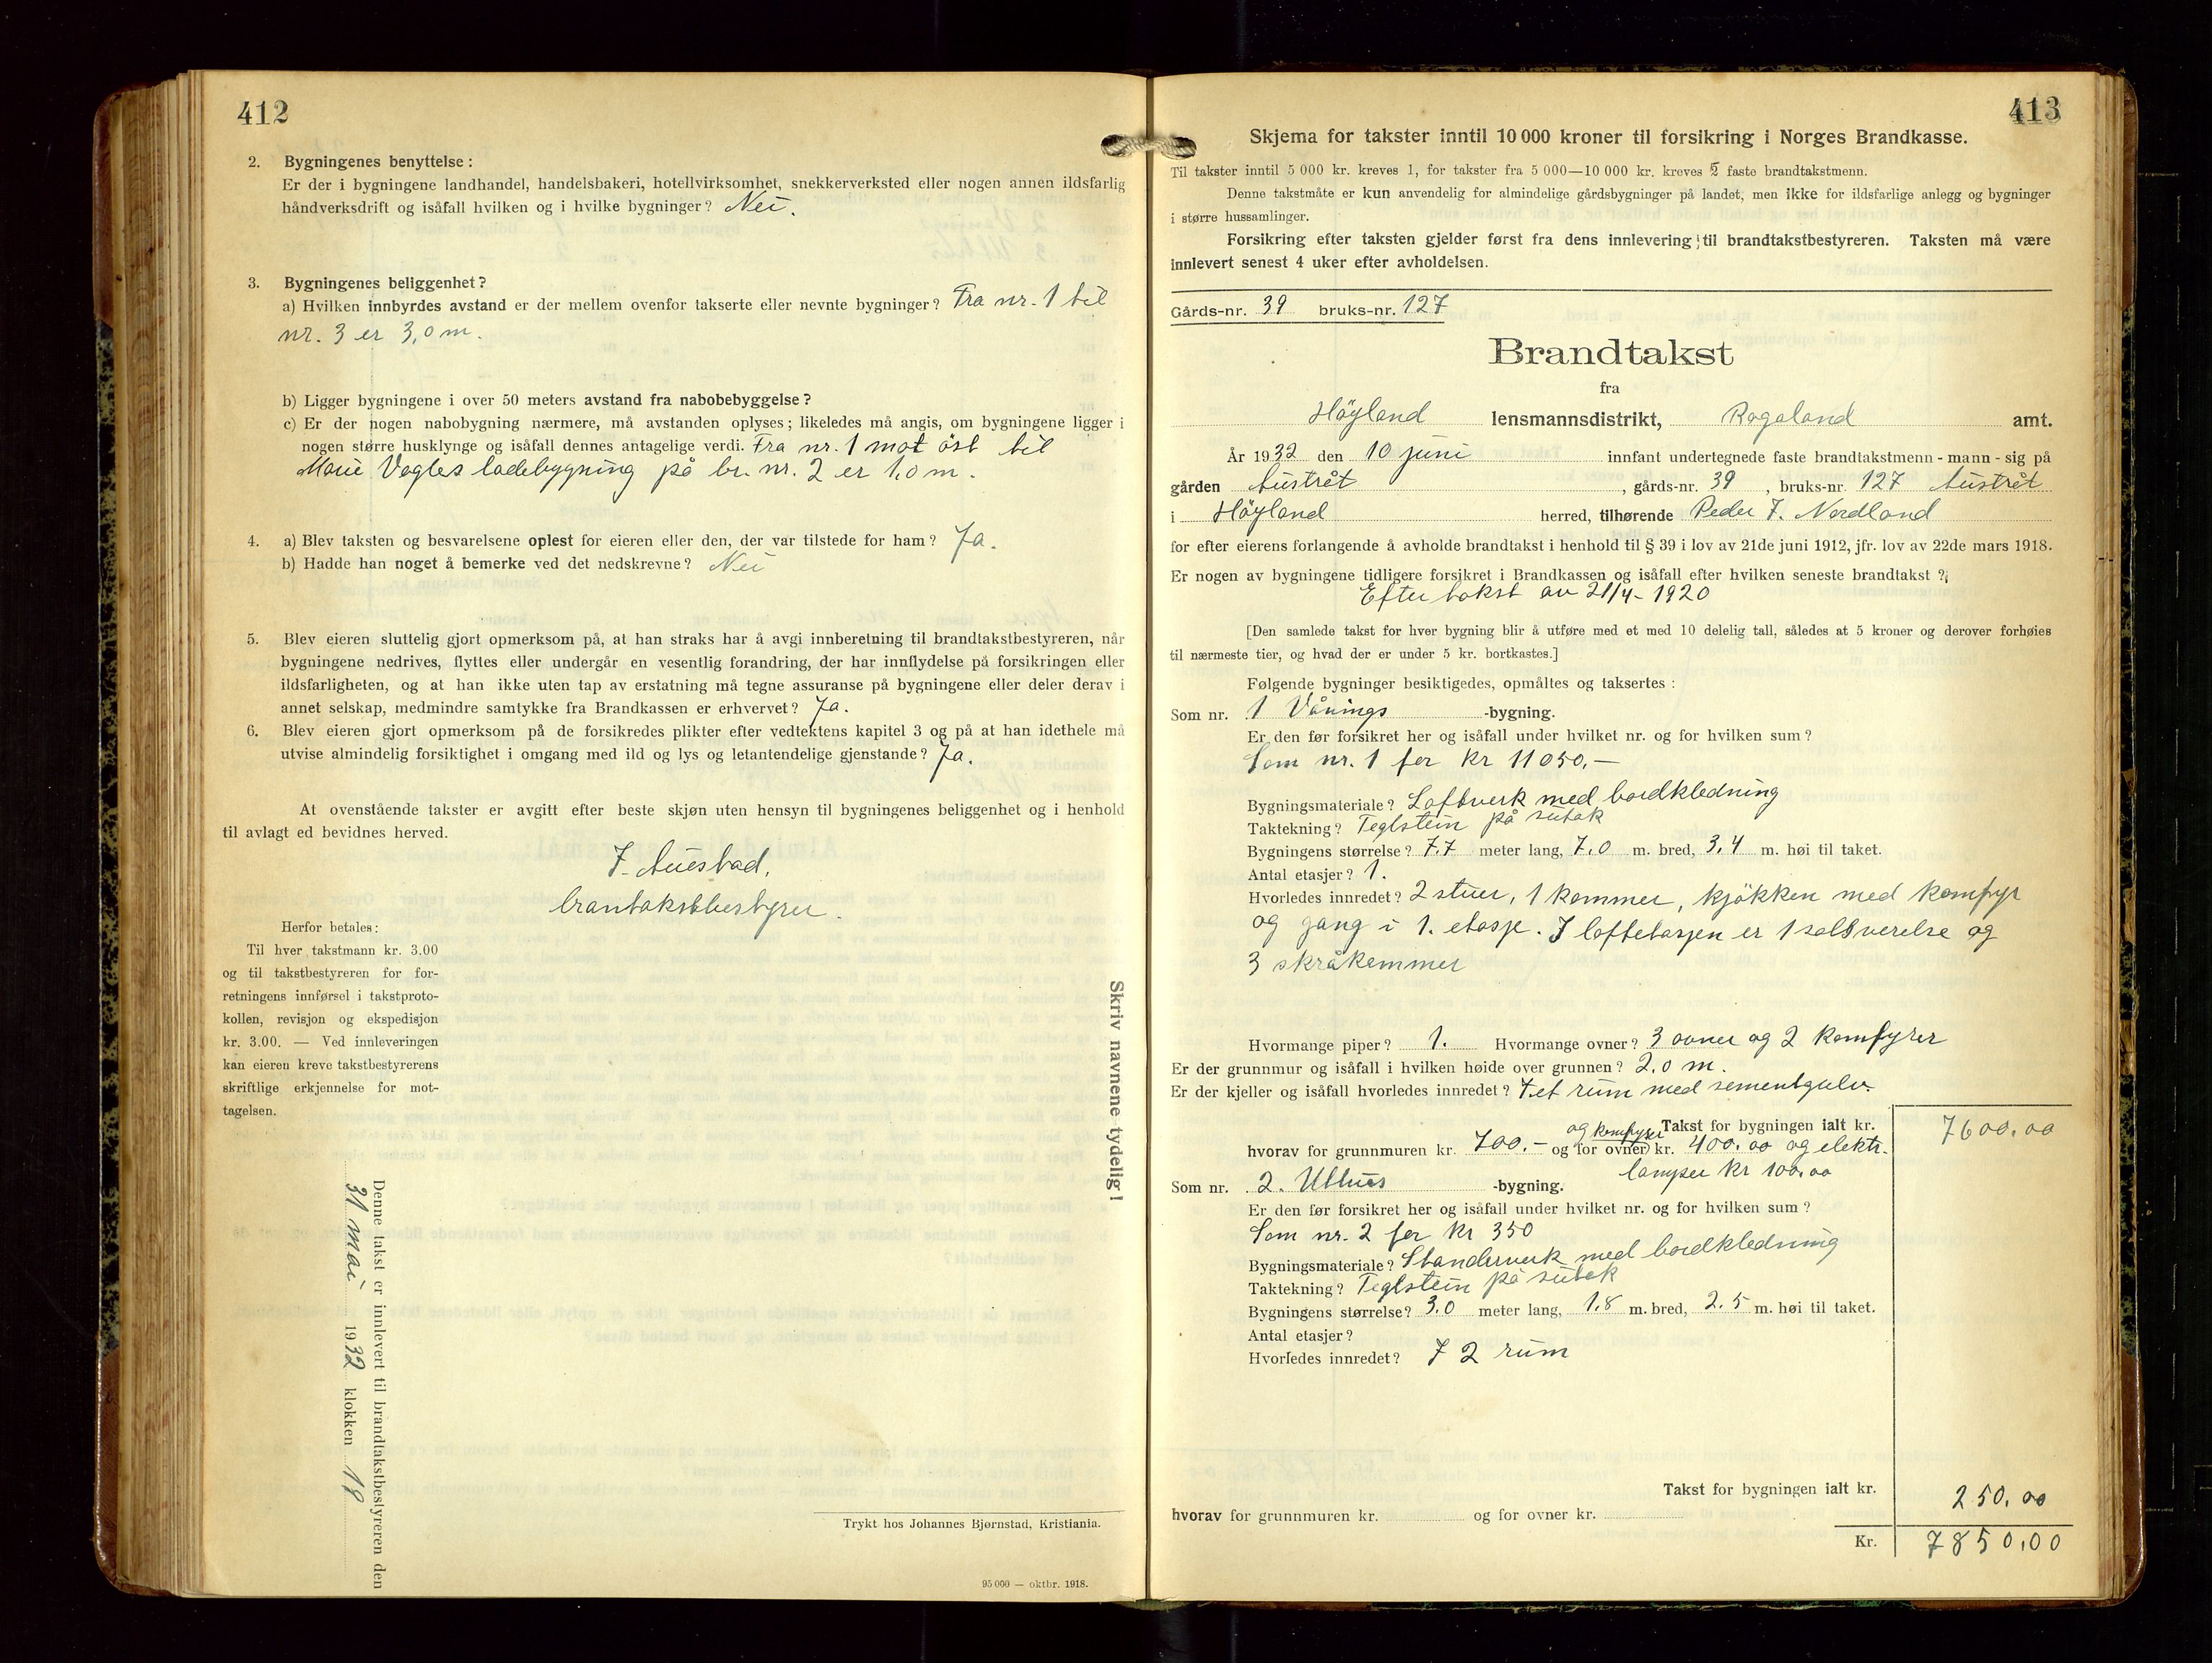 412
2. Bygningenes benyttelse:
Er der i bygningene landhandel, handelsbakeri, hotellvirksomhet, snekkerverksted eller nogen annen ildsfarlig
håndverksdrift og isåfall hvilken og i hvilke bygninger? Nei.
3. Bygningenes beliggenhet?
a) Hvilken innbyrdes avstand er der mellem ovenfor takserte eller nevnte bygninger? Fra nr. 1 til
nr. 3 er 3,0 m.
b) Ligger bygningene i over 50 meters avstand fra nabobebyggelse?
c) Er der nogen nabobygning nærmere, må avstanden oplyses; likeledes må angis, om bygningene ligger i
nogen større husklynge og isåfall dennes antagelige verdi. Fra nr. 1 mot öst til
Marie Vagles ladebygning på br. nr. 2 er 1,0 m.
4. a) Blev taksten og besvarelsene oplest for eieren eller den, der var tilstede for ham? Ja.
b) Hadde han noget å bemerke ved det nedskrevne? Nei
5. Blev eieren sluttelig gjort opmerksom på, at han straks har å avgi innberetning til brandtakstbestyreren, når
bygningene nedrives, flyttes eller undergår en vesentlig forandring, der har innflydelse på forsikringen eller
ildsfarligheten, og at han ikke uten tap av erstatning må tegne assuranse på bygningene eller deler derav i
annet selskap, medmindre samtykke fra Brandkassen er erhvervet? Ja.
6. Blev eieren gjort opmerksom på de forsikredes plikter efter vedtektens kapitel 3 og på at han idethele må
utvise almindelig forsiktighet i omgang med ild og lys og letantendelige gjenstande? Ja.
At ovenstående takster er avgitt efter beste skjøn uten hensyn til bygningenes beliggenhet og i henhold
til avlagt ed bevidnes herved.
J. Auestad,
brantakstbestyrer.
Herfor betales:
Til hver takstmann kr. 3.00
og til takstbestyreren for for-
retningens innførsel i takstproto-
kollen, revisjon og ekspedisjon
kr. 3.00. — Ved innleveringen
kan eieren kreve takstbestyrerens
skriftlige erkjennelse for mot-
tagelsen.
Denne takst er innlevert til brandtakstbestyreren den
31 mai 1932 klokken 18
Skriv navnene tydelig!
Trykt hos Johannes Bjørnstad, Kristiania.
95 000 — oktbr. 1918.
413
Skjema for takster inntil 10 000 kroner til forsikring i Norges Brandkasse.
Til takster inntil 5 000 kr. kreves 1, for takster fra 5 000—10 000 kr. kreves 2 faste brandtakstmenn.
Denne takstmåte er kun anvendelig for almindelige gårdsbygninger på landet, men ikke for ildsfarlige anlegg og bygninger
i større hussamlinger.
Forsikring efter taksten gjelder først fra dens innlevering til brandtakstbestyreren. Taksten må være
innlevert senest 4 uker efter avholdelsen.
Gårds-nr. 39 bruks-nr. 127
Brandtakst
fra
Höyland lensmannsdistrikt, Rogaland amt.
År 1932 den 10 juni innfant undertegnede faste brandtakstmenn - mann - sig på
gården Austråt, gårds-nr. 39, bruks-nr. 127 Austråt
i Höyland herred, tilhørende Peder J. Nordland
for efter eierens forlangende å avholde brandtakst i henhold til § 39 i lov av 21de juni 1912, jfr. lov av 22de mars 1918.
Er nogen av bygningene tidligere forsikret i Brandkassen og isåfall efter hvilken seneste brandtakst?
Efter takst av 21/4- 1920
[Den samlede takst for hver bygning blir å utføre med et med 10 delelig tall, således at 5 kroner og derover forhøies
til nærmeste tier, og hvad der er under 5 kr. bortkastes.]
Følgende bygninger besiktigedes, opmåltes og taksertes:
Som nr. 1 Vånings -bygning.
Er den før forsikret her og isåfall under hvilket nr. og for hvilken sum?
Som nr. 1 for kr 11050.—
Bygningsmateriale? Loftverk med bordkledning
Taktekning? Teglstein på sutak
Bygningens størrelse? 7.7 meter lang, 7.0 m. bred, 3.4 m. høi til taket.
Antal etasjer? 1.
Hvorledes innredet? 2 stuer, 1 kammer, kjökken med komfyr
og gang i 1. etasje. I loftetasjen er 1 salsverelse og
3 skråkammer
Hvormange piper? 1. Hvormange ovner? 3 ovner og 2 komfyrer
Er der grunnmur og isåfall i hvilken høide over grunnen? 2,0 m.
Er der kjeller og isåfall hvorledes innredet? I et rum med sementgulv.
Takst for bygningen ialt kr. 7600.00
og komfyrer
hvorav for grunnmuren kr. 700.— og for ovner kr. 400.00 og elektr.
lamper kr 100.00
Som nr. 2. Uthus -bygning.
Er den før forsikret her og isåfall under hvilket nr. og for hvilken sum?
Som nr. 2 for kr 350
Bygningsmateriale? Standerverk med bordkledning
Taktekning? Teglstein på sutak
Bygningens størrelse? 3.0 meter lang, 1.8 m. bred, 2.5 m. høi til taket.
Antal etasjer?
Hvorledes innredet? I 2 rum
Takst for bygningen ialt kr. 250.00
hvorav for grunnmuren kr. og for ovner kr.
Kr. 7850,00